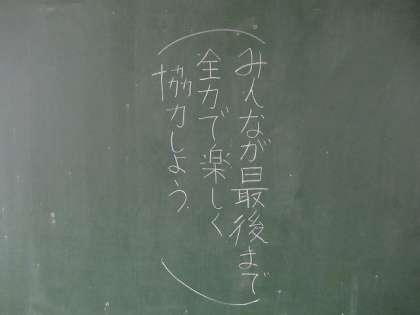 みんなが最後まで
全力で楽しく
協力しよう